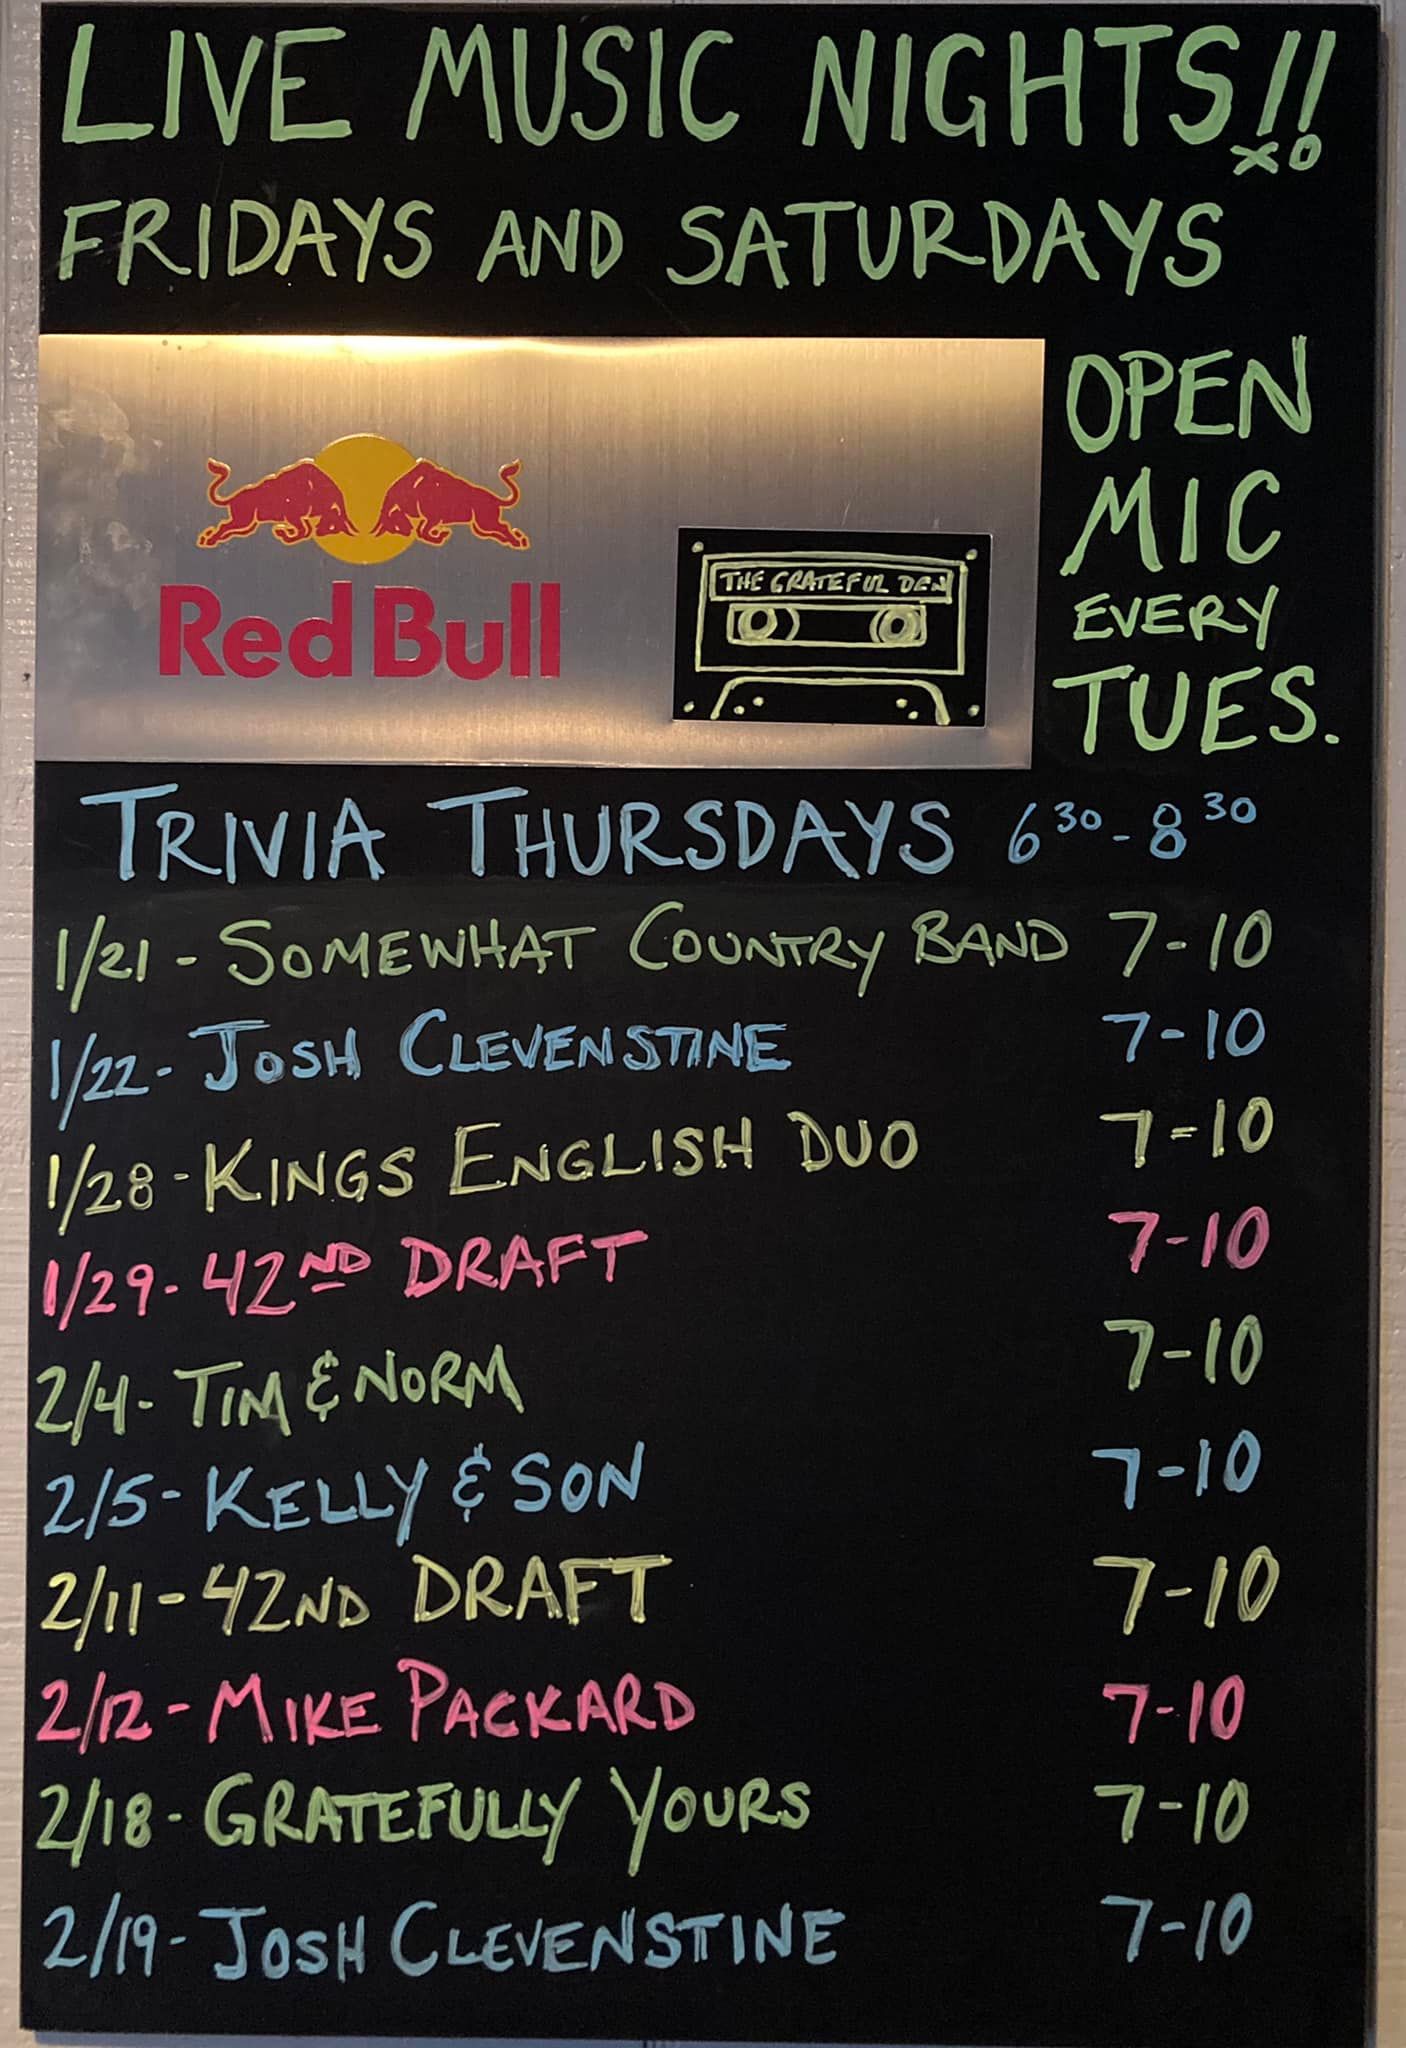 LIVE MUSIC NIGHTS!!
XO
FRIDAYS AND SATURDAYS
OPEN
MIC
EVERY
TUES.
Red Bull
THE GRATEFUL DEN
TRIVIA THURSDAYS 6 30 - 8 30
1/21 - SOMEWHAT COUNTRY BAND 7-10
1/22 - JOSH CLEVENSTINE 7-10
1/28 - KINGS ENGLISH DUO 7-10
1/29 - 42ND DRAFT 7-10
2/4 - TIM & NORM 7-10
2/5 - KELLY & SON 7-10
2/11 - 42ND DRAFT 7-10
2/12 - MIKE PACKARD 7-10
2/18 - GRATEFULLY YOURS 7-10
2/19 - JOSH CLEVENSTINE 7-10